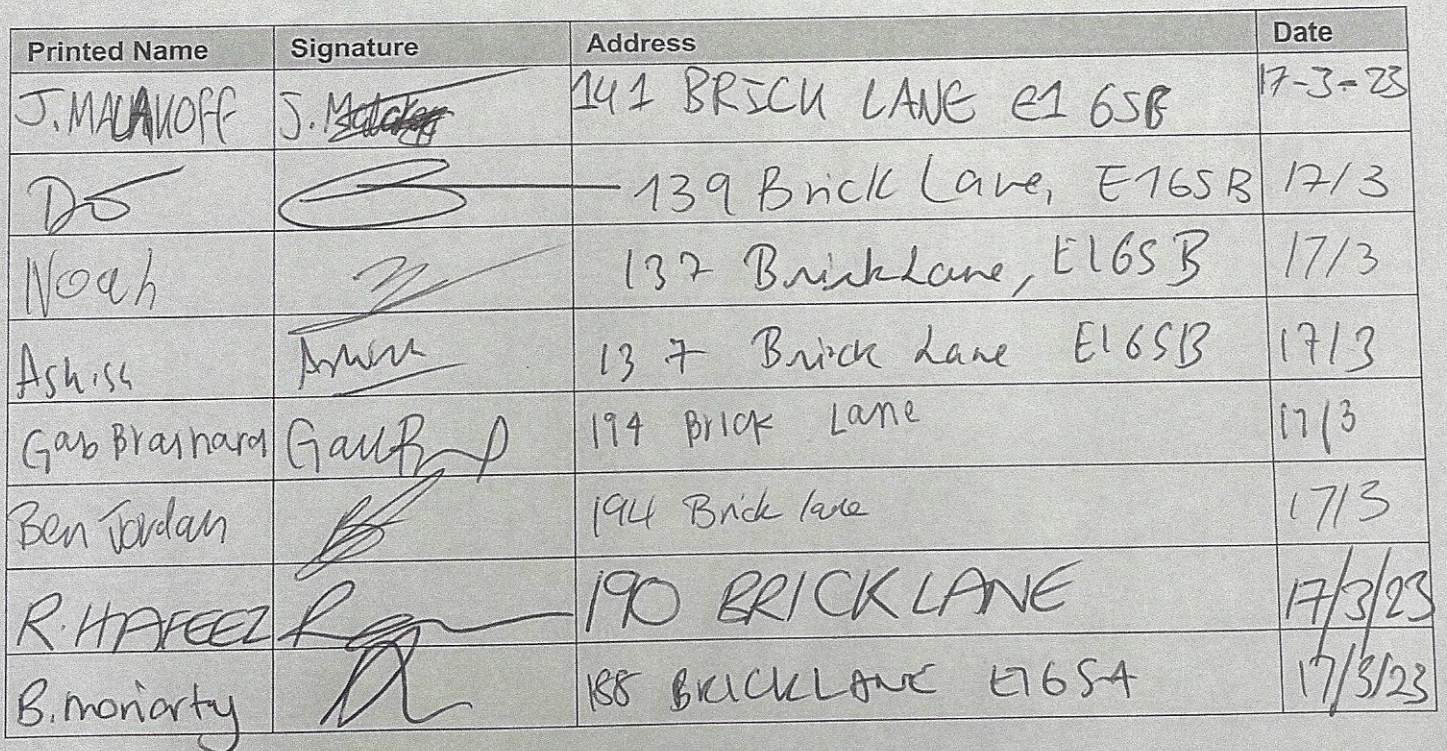 Printed Name Signature Address Date
J. MALAKOFF J. 141 BRICK LANE e1 6SB 17-3-23
139 Brick Lane, E16SB 17/3
Noah 137 Brick Lane, E16SB 17/3
Ashish 137 Brick Lane E16SB 17/3
Gab Brainard 194 Brick Lane 17/3
Ben Jordan 194 Brick lane 17/3
R. HAFEEZ 190 BRICK LANE 17/3/23
B. moriarty 188 BRICK LANE E16SA 17/3/23